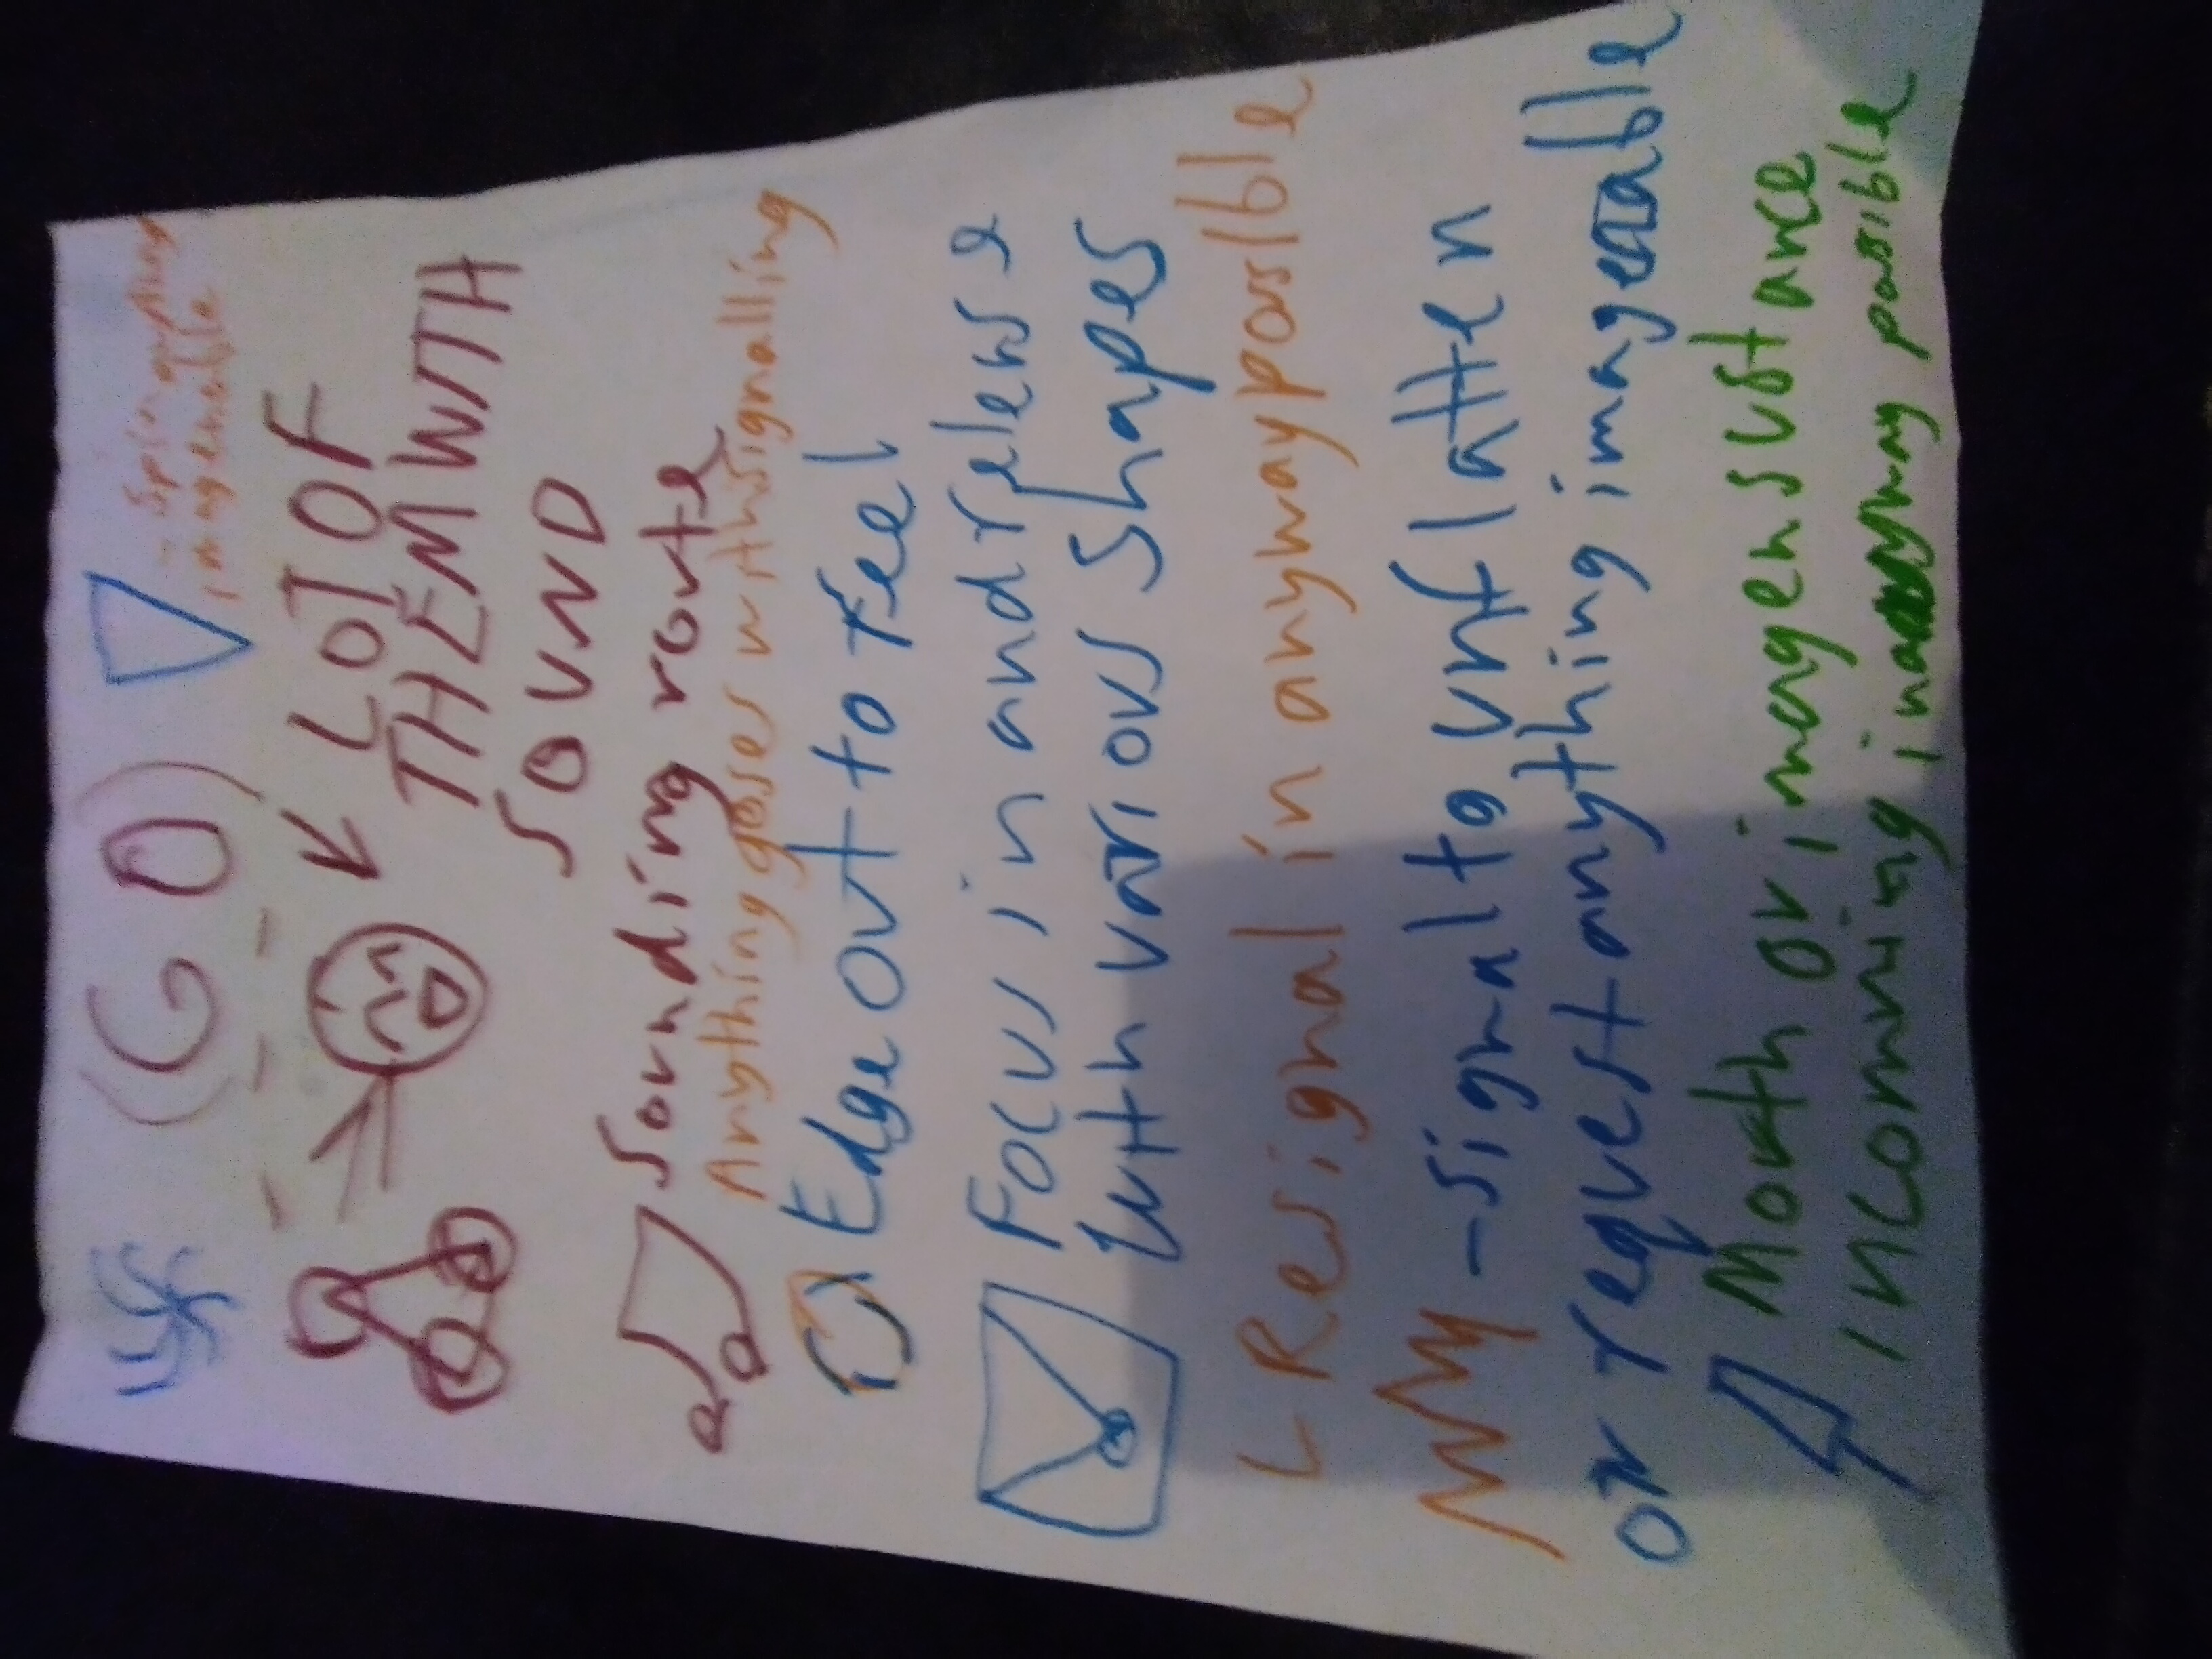 imagenable
LOT OF
THEM WITH
SOUND
Sounding route
Anything goes with signalling
Edge out to feel
Focus in and relense
with various shapes
Resignal in anyway possible
- signal to unflatten
or request anything imageable
Mouth or imagen sustance
incoming in any possible